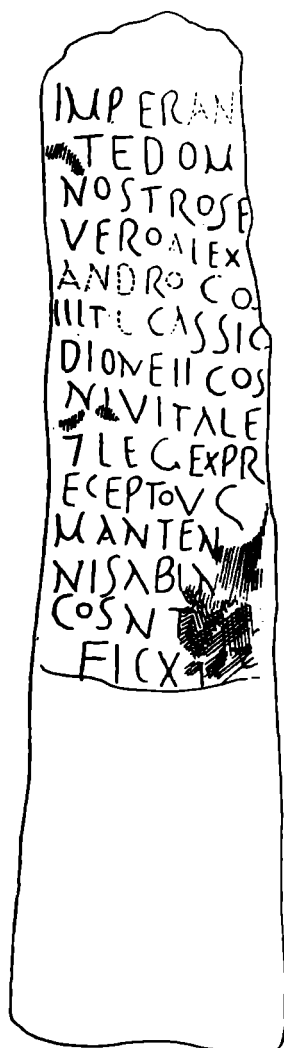 IMPERAN
TEDOM
NOSTROSE
VEROALEX
ANDROCO
IIITLCASSIO
DIONEIICOS
NIVITALE
7LEGEXPR
ECEPTOVC
MANTEN
NISABIN
COSNT
FICX